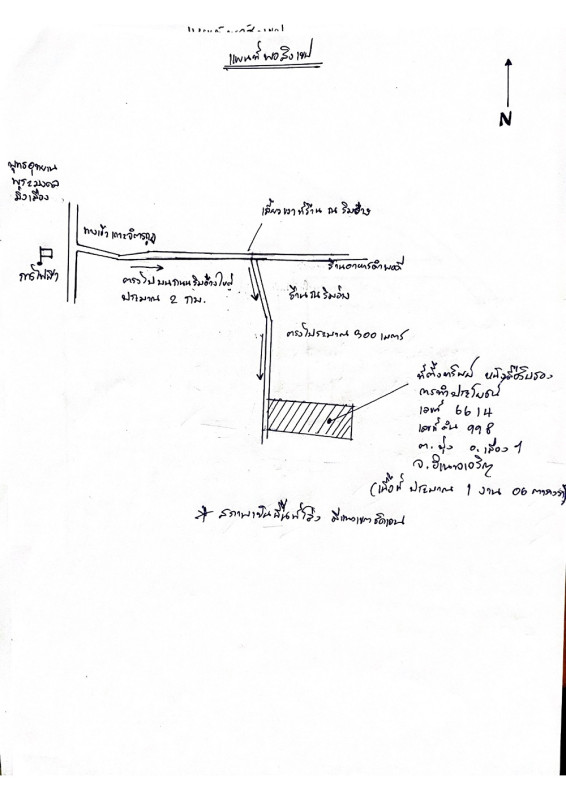 แผนที่พอสังเขป
N
พุทธอุทยาน
พระมงคล
มิ่งเมือง
ทางเข้า
เลี้ยวขวาที่ร้าน ณ ริมอ่าง
การไฟฟ้า
ตรงไปบนถนนริมอ่างใหญ่
ประมาณ 2 กม.
ร้านอาหาร
ร้าน ณ ริมอ่าง
ตรงไปประมาณ 300 เมตร
ที่ตั้งทรัพย์ หนังสือรับรอง
การทำประโยชน์
เลขที่ 6614
เลขที่ดิน 998
ต. บุ่ง อ. เมืองฯ
จ. อำนาจเจริญ
(เนื้อที่ ประมาณ 1 งาน 06 ตารางวา)
* สภาพเป็นพื้นที่โล่ง มีแนวเขตชัดเจน